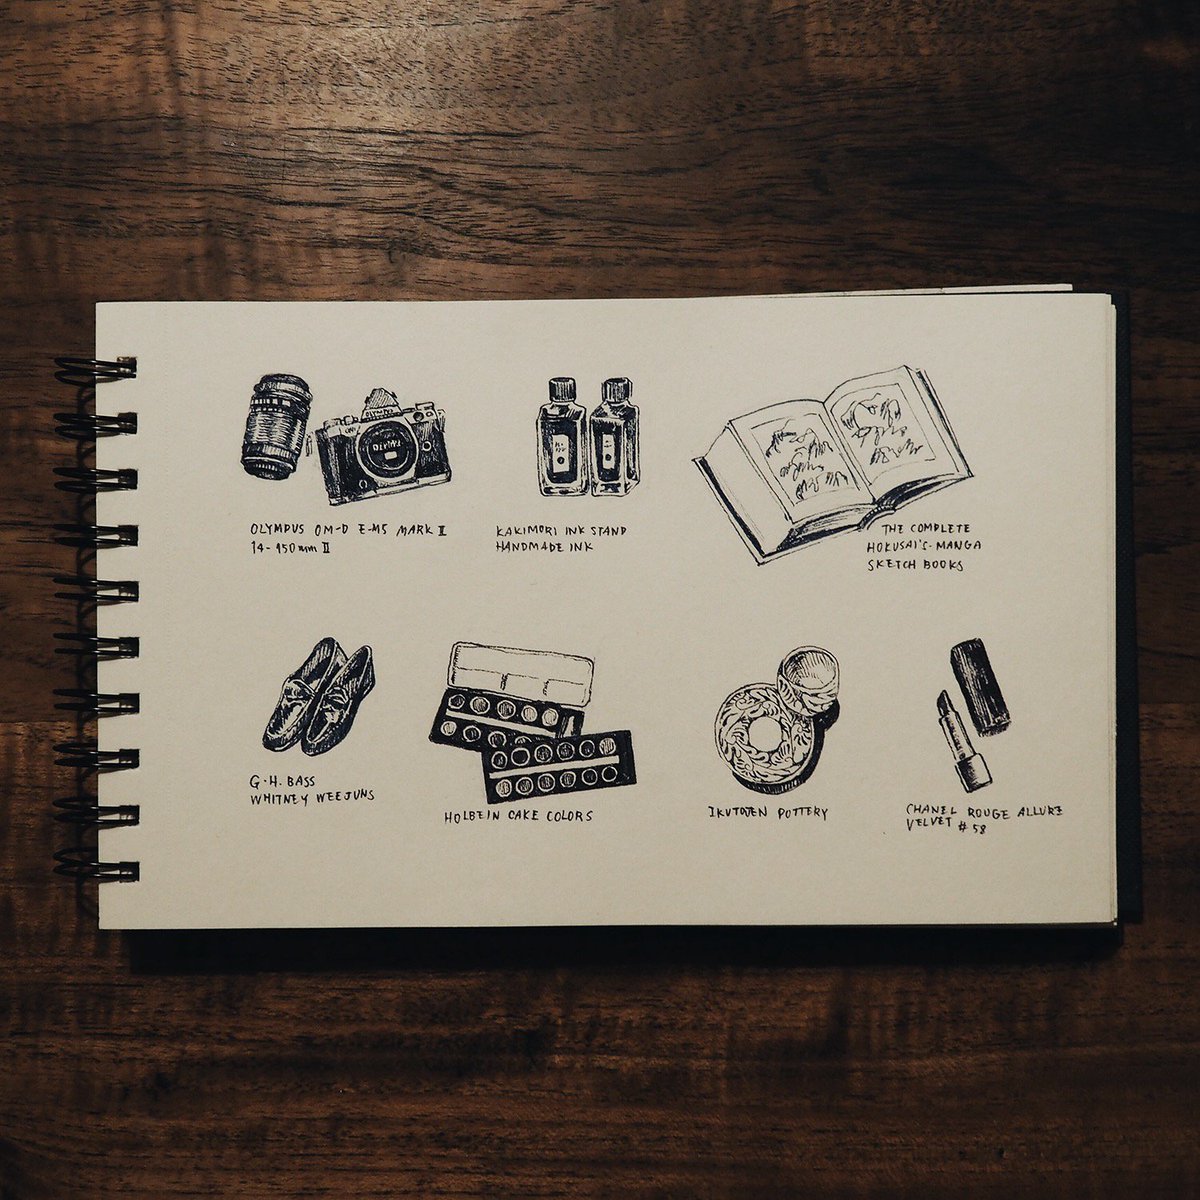 OLYMPUS
OLYMPUS OM-D E-M5 MARK II
14-150mm II
KAKIMORI INK STAND
HANDMADE INK
THE COMPLETE
HOKUSAI'S-MANGA
SKETCH BOOKS
G.H. BASS
WHITNEY WEEJUNS
HOLBEIN CAKE COLORS
POTTERY
CHANEL ROUGE ALLURE
VELVET #58